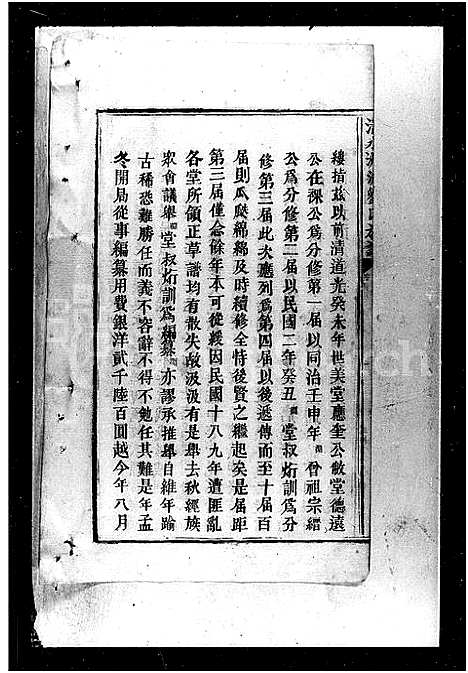 縷揹茲以前清道光癸未年世美堂應奎公敘堂德遠
公在深公爲分修第一届以同治壬申年 曾祖宗縉
公爲分修第二届以民國二年癸丑 堂叔炘訓爲分
修第三届此次應列爲第四届以後遞傳而至十届百
届則瓜瓞綿綿及時續修全恃後賢之繼起矣是届距
第三届僅念餘年本可從緩因民國十八九年遭匪亂
各堂所領正草譜均有散失故汲汲有是舉去秋經族
眾會議舉 堂叔炘訓爲編纂 亦謬承推舉自維年踰
古稀恐難勝任而義不容辭不得不勉任其難是年孟
冬開局從事編纂用費銀洋貳千陸百圓越今年八月